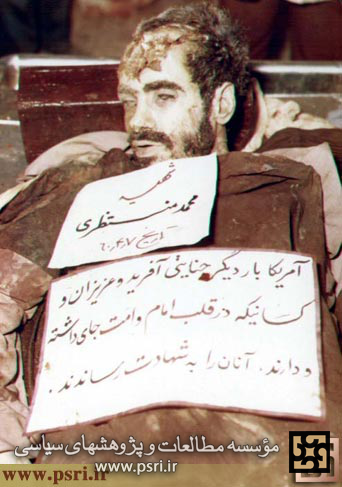 شهید
محمد منتظری
تاریخ ۶۰٫۴٫۷
آمریکا بار دیگر جنایتی آفرید و عزیزان و
کسانیکه در قلب امام و امت جای داشته
و دارند، آنان را به شهادت رساندند.
مؤسسه مطالعات و پژوهشهای سیاسی
www.psri.ir
www.psri.ir